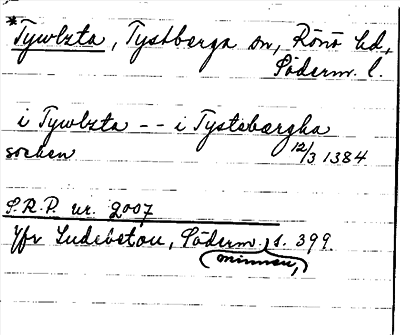 *Tywlzta, Tystberga sn, Rönö hd,
Söderm. l.
i Tywlzta -- i Tystebærgha
socken 12/3 1384
S.R.P. nr. 2007
Jfr Ludevetou, Söderm. s. 399.
minnen,